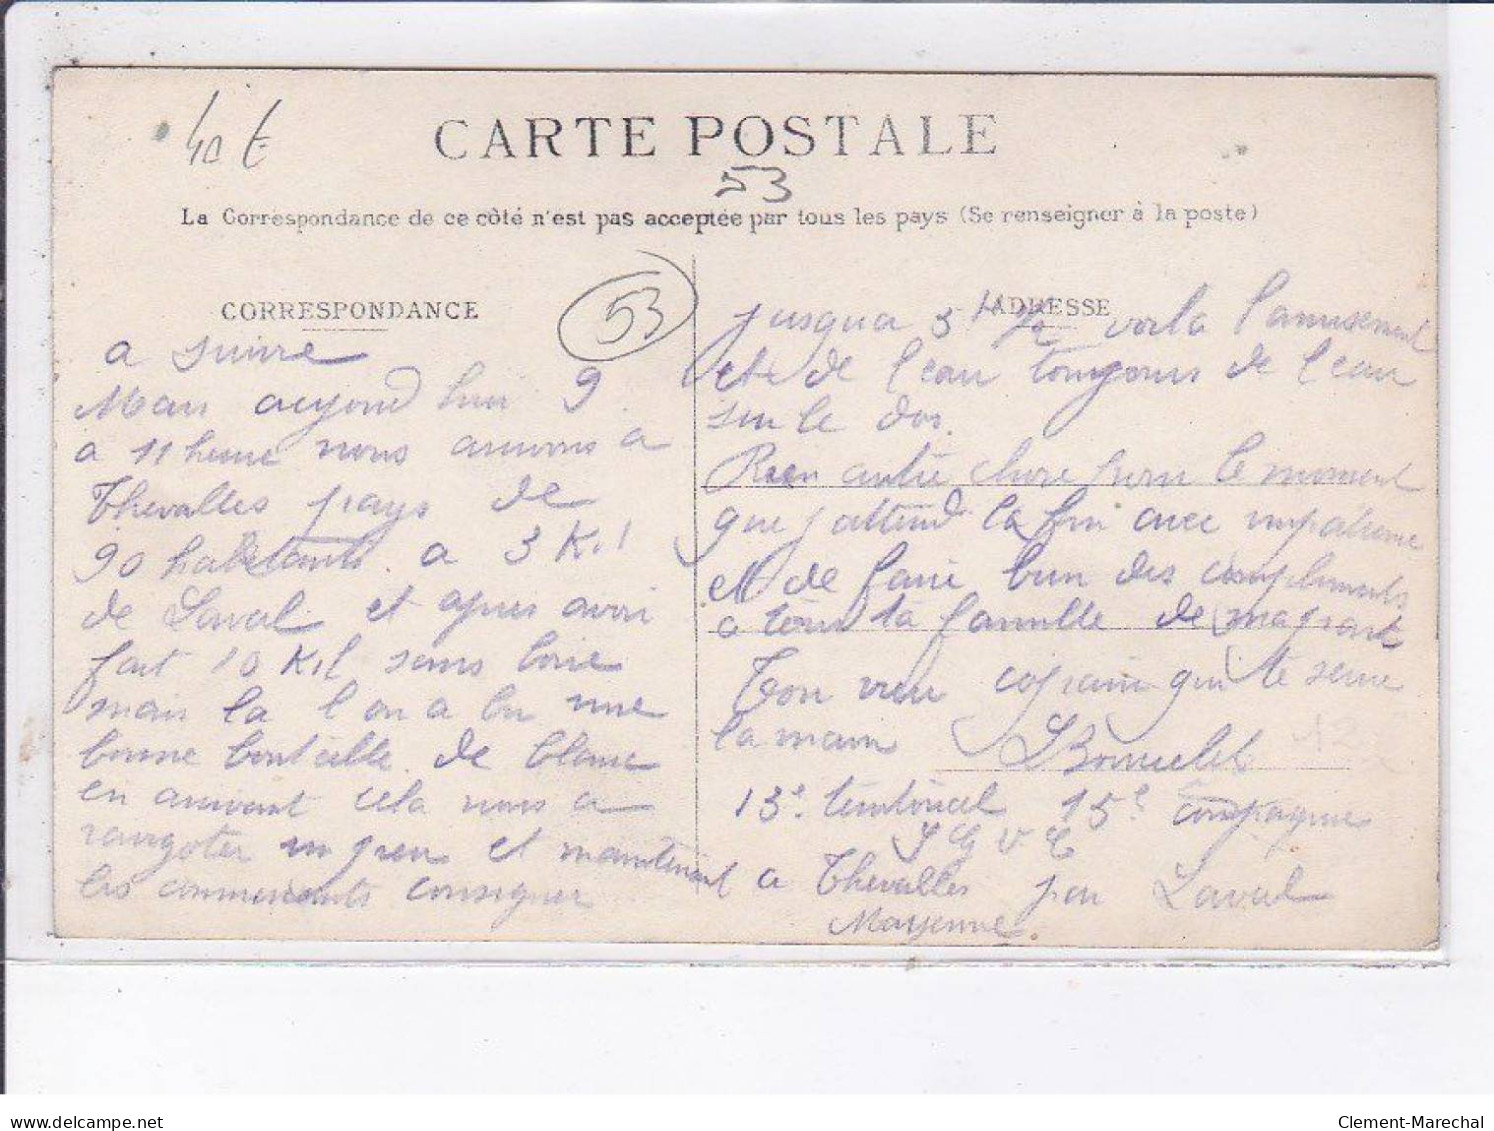 40 €
CARTE POSTALE
53
La Correspondance de ce côté n'est pas acceptée par tous les pays (Se renseigner à la poste)
CORRESPONDANCE
53
a suivre
Mais aujourd hui 9
a 11 heure nous arrivons a
Thevalles pays de
90 habitants a 3 Kil
de Laval et apres avoir
fait 10 Kil sans boire
mais la l on a bu une
bonne bouteille de blanc
en arrivant cela nous a
ravigoter un peu et maintenant
les commercants consigner
ADRESSE
jusqua 5 h ½ voila l amusement
et de l eau toujours de l eau
sur le dos.
Rien autre chose pour le moment
que j attend la fin avec impatience
et de faire bien des compliments
a toute ta famille de ma part
Ton vieu copain qui te serre
la main
13e territorial 15e compagnie
S G V C
a Thevalles par Laval
Mayenne.
Clement-Marechal